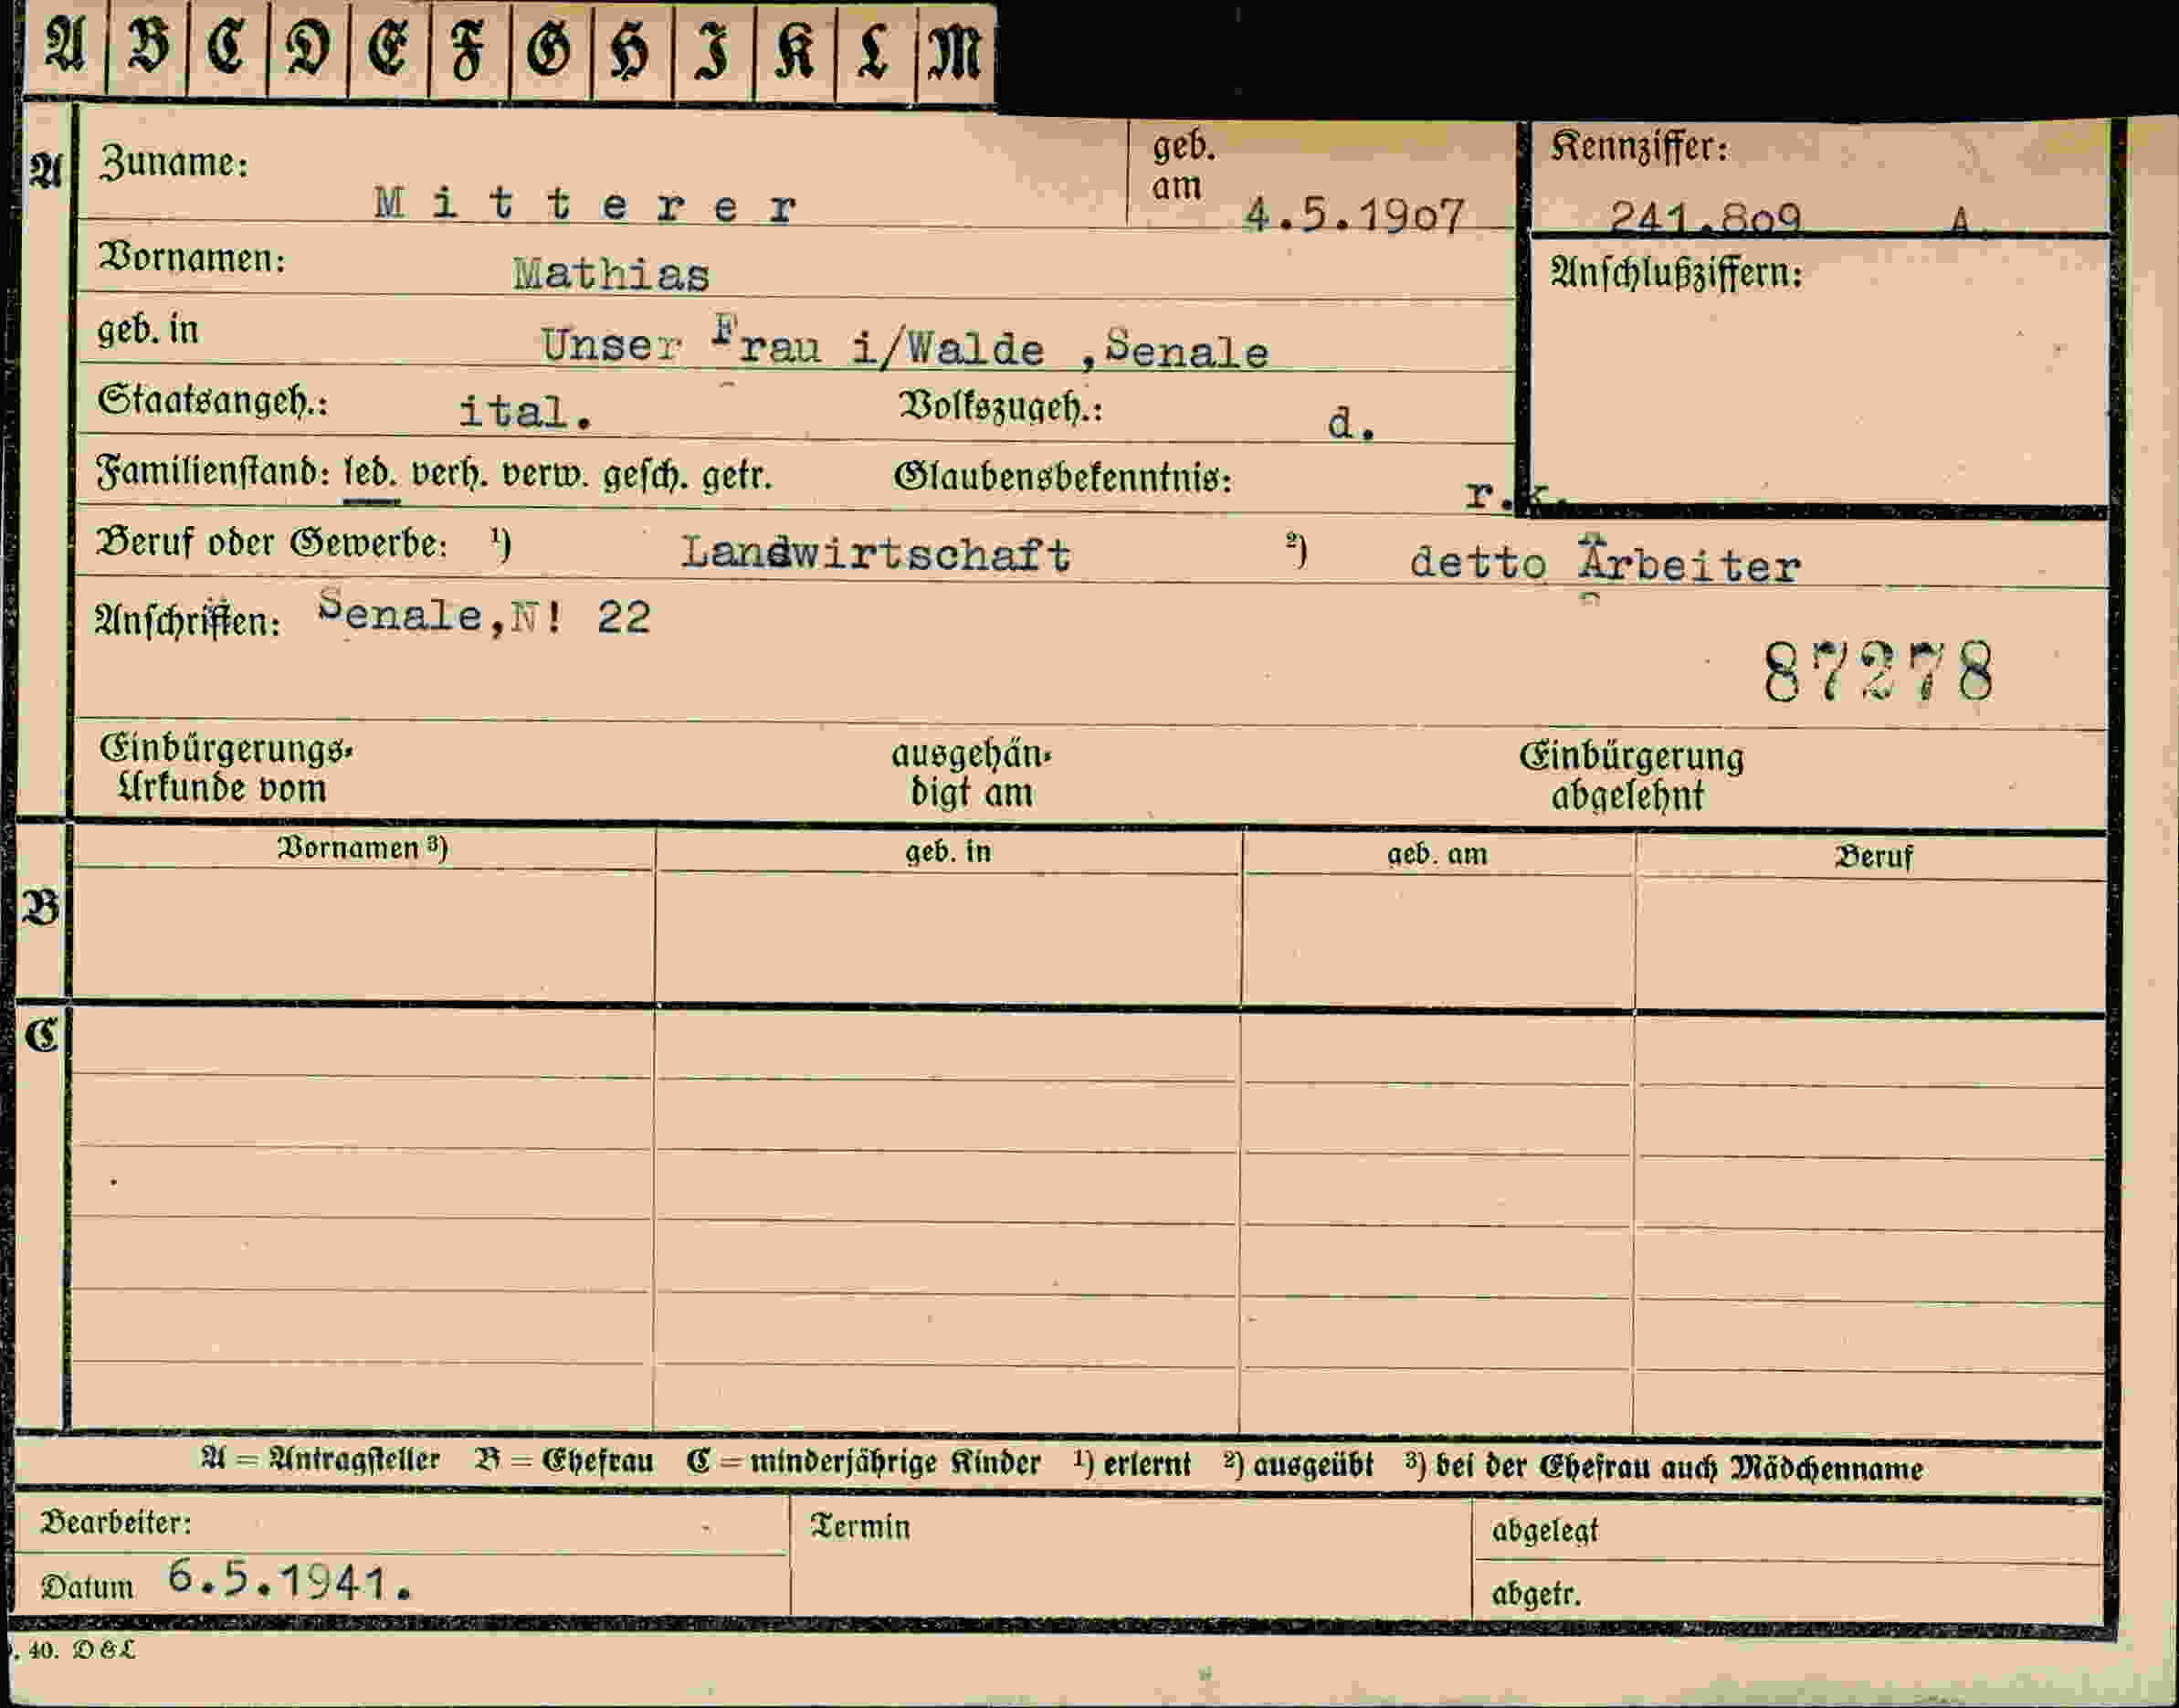 A B C D E F G H I K L M
A Zuname: Mitterer geb. am 4.5.1907 Kennziffer: 241.809 A
Vornamen: Mathias Anschlußziffern:
geb. in Unser Frau i/Walde ,Senale
Staatsangeh.: ital. Volkszugeh.: d.
Familienstand: led. verh. verw. gesch. getr. Glaubensbekenntnis: r.k.
Beruf oder Gewerbe: ¹) Landwirtschaft ²) detto Arbeiter
Anschriften: Senale,N! 22
87278
Einbürgerungs-Urkunde vom ausgehändigt am Einbürgerung abgelehnt
Vornamen ³) geb. in geb. am Beruf
B
C
A = Antragsteller B = Ehefrau C = minderjährige Kinder ¹) erlernt ²) ausgeübt ³) bei der Ehefrau auch Mädchenname
Bearbeiter: Termin abgelegt
Datum 6.5.1941. abgetr.
. 40. D & L